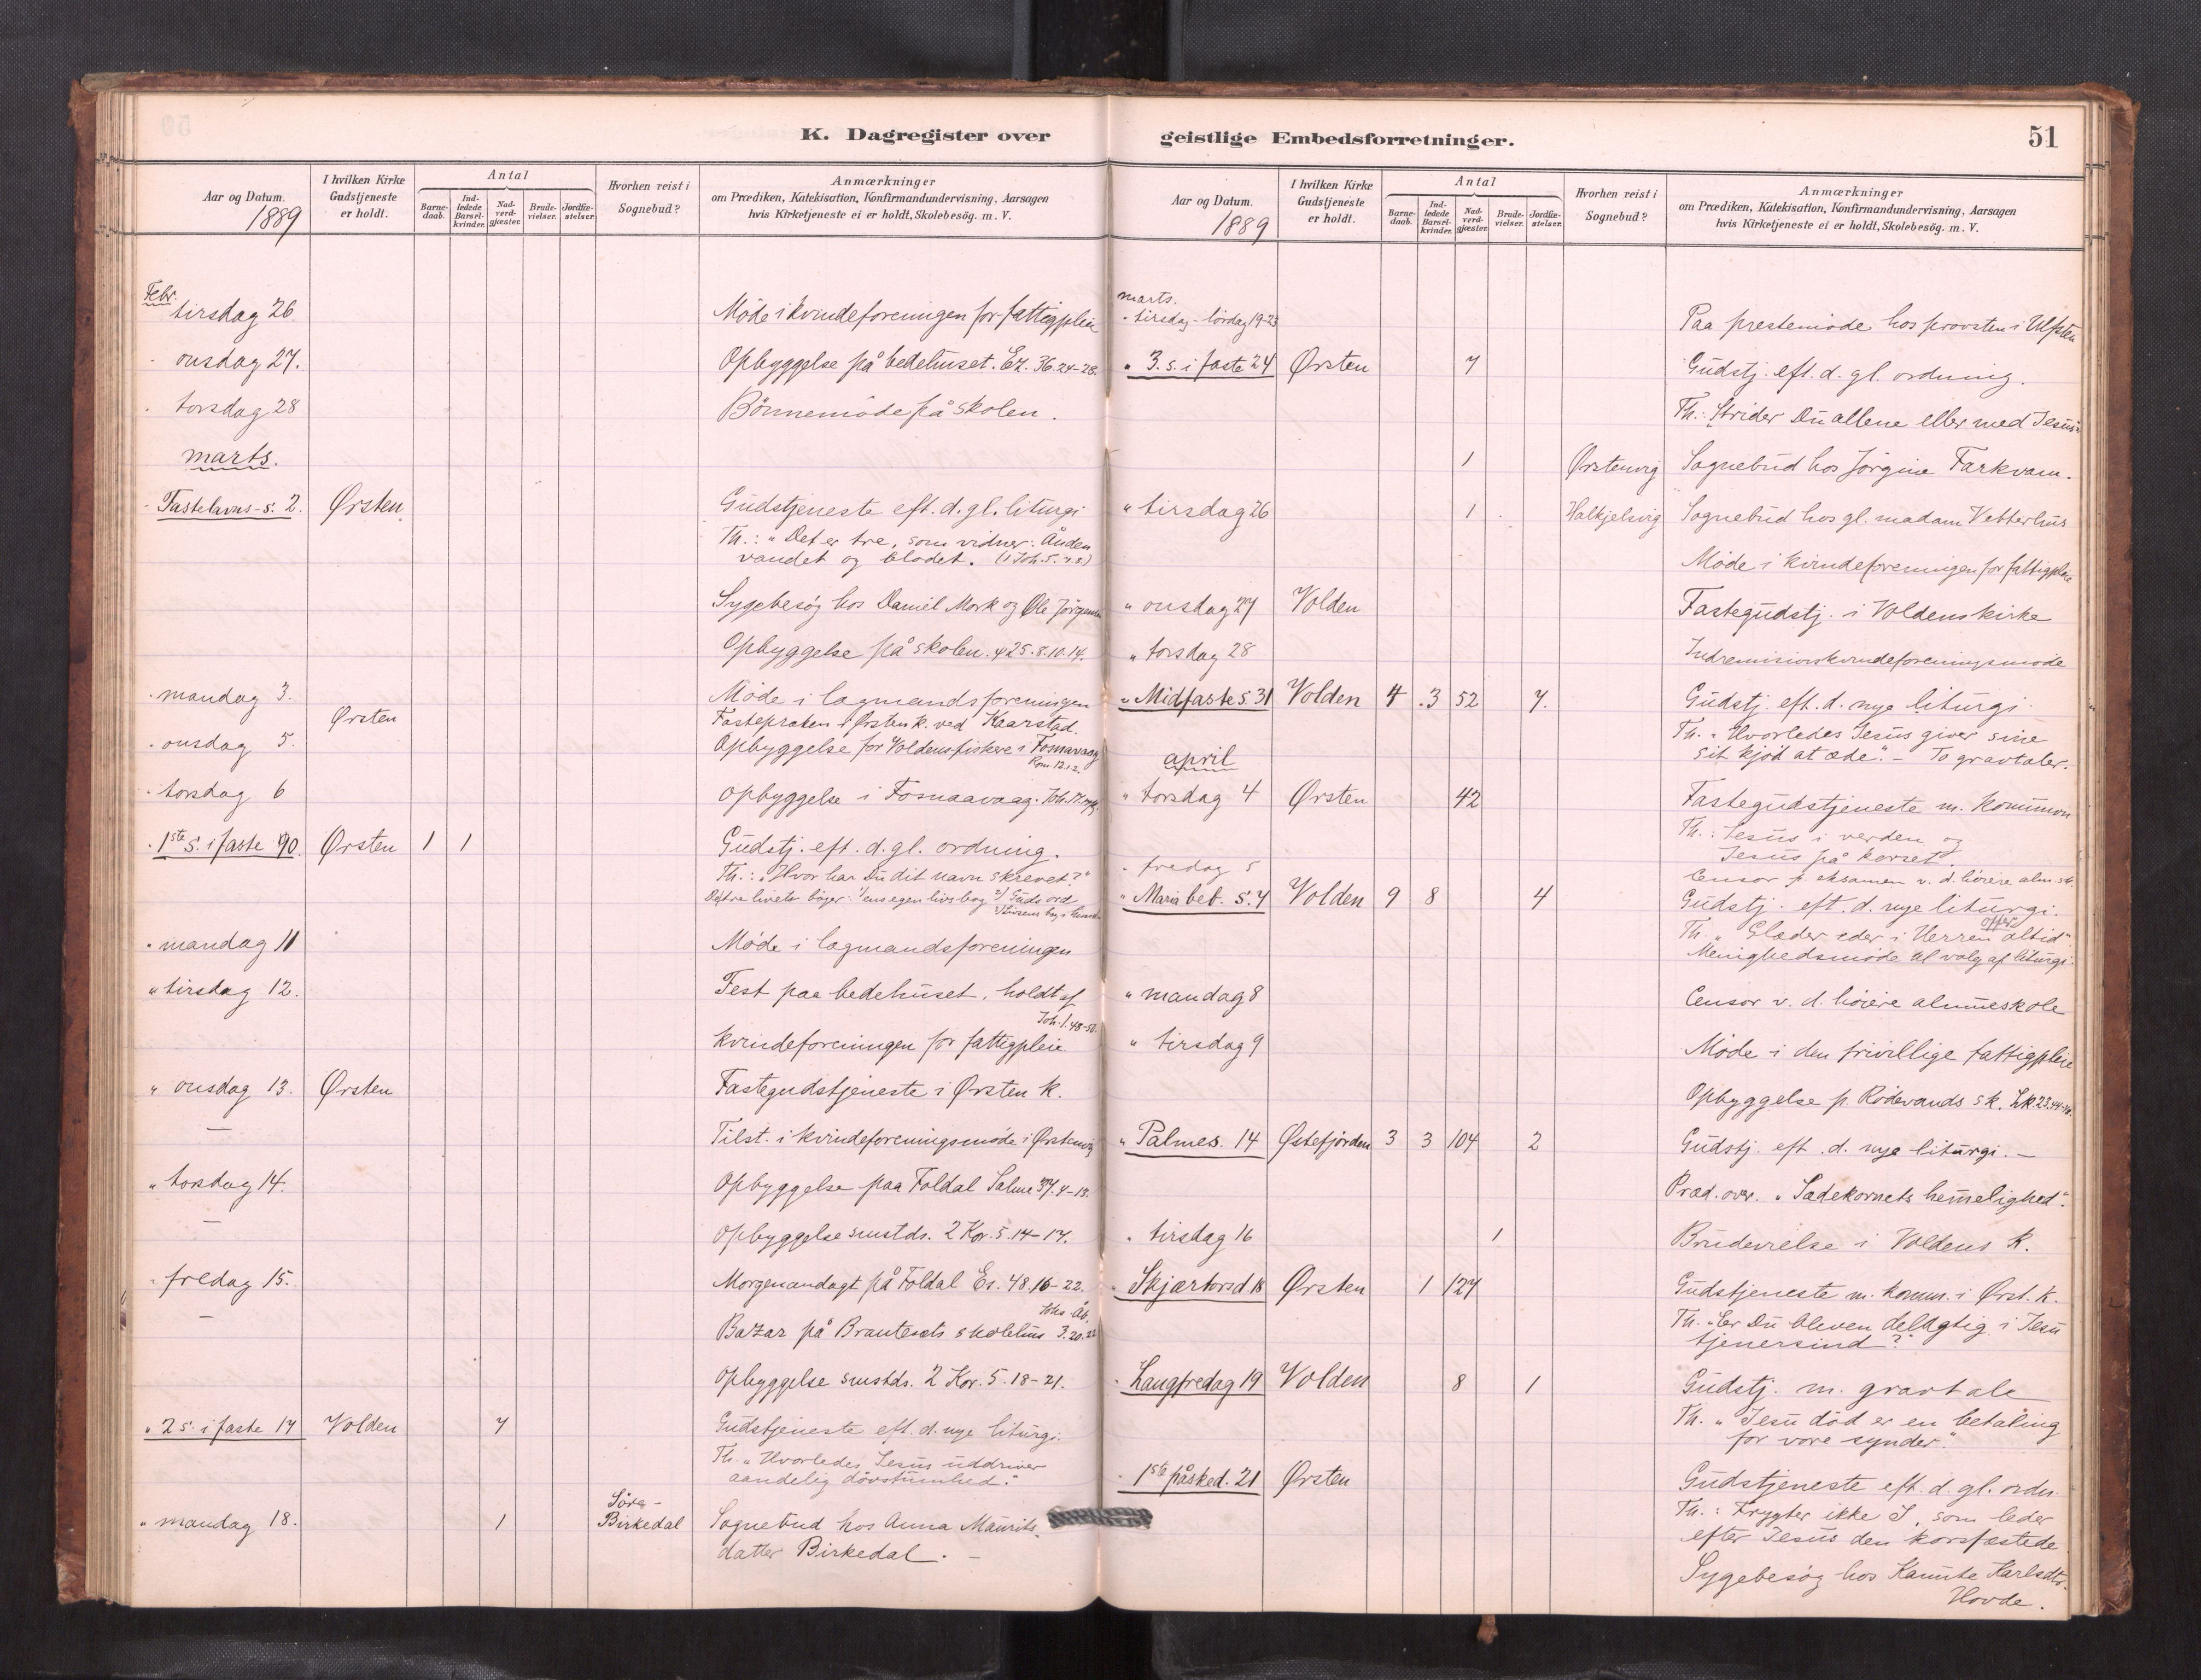 K. Dagregister over
Aar og Datum. 1889
I hvilken Kirke Gudstjeneste er holdt.
Antal
Barnedaab. Indledede Barselkvinder. Nadverdgjæster. Brudevielser. Jordfæstelser.
Hvorhen reist i Sognebud?
Anmærkninger
om Prædiken, Katekisation, Konfirmandundervisning, Aarsagen
hvis Kirketjeneste ei er holdt, Skolebesög. m. V.
Febr.
tirsdag 26 Möde i kvindeforeningen for fattigpleie
" onsdag 27. Opbyggelse på bedehuset. Ez. 36.24-28.
" torsdag 28 Bönnemöde på skolen.
marts.
" Fastelavns-s. 2. Ørsten Gudstjeneste eft. d. gl. liturgi
Th.: "Det er tre, som vidner: Ånden
vandet og blodet. (1 Joh. 5. 8)
Sygebesög hos Daniel Mork og Ole Jörgensen
Opbyggelse på skolen. 25.8.10.14.
" mandag 3. Möde i lagmandsforeningen
Ørsten Fastepræken i Ørsten k. ved Kaarstad.
" onsdag 5. Opbyggelse for Voldensfiskere i Fosnavaag
Rom. 12.1.2.
" torsdag 6 Opbyggelse i Fosnaavaag. Joh.
" 1ste S. i faste 10. Ørsten 1 1 Gudstj. eft. d. gl. ordning.
Th.: "Hvor har Du dit navn skrevet?"
livets böger: 1/ ens egen livsbog 2/ Guds ord
" mandag 11 Möde i lagmandsforeningen
" tirsdag 12. Fest paa bedehuset, holdt af
Joh. 1. 48-50.
kvindeforeningen for fattigpleie
" onsdag 13. Ørsten Fastegudstjeneste i Ørsten k.
— Tilst. i kvindeforeningsmöde i Ørstenvig
" torsdag 14. Opbyggelse paa Foldal Salme 37. 4-13.
— Opbyggelse smstds. 2 Kor. 5. 14-17.
" fredag 15. Morgenandagt på Foldal Es. 48. 16-22.
— Bazar på skolehus Johs Åb. 3. 20.22
Opbyggelse smstds. 2 Kor. 5. 18-21.
" 2 s. i faste 17 Volden 7 Gudstjeneste eft. d. nye liturgi.
Th. "Hvorledes Jesus uddriver
aandelig dövstumhed."
" mandag 18. 1 Söre-Birkedal Sognebud hos Anna Maurits-
datter Birkedal. —
geistlige Embedsforretninger.
51
Aar og Datum. 1889
I hvilken Kirke Gudstjeneste er holdt.
Antal
Barnedaab. Indledede Barselkvinder. Nadverdgjæster. Brudevielser. Jordfæstelser.
Hvorhen reist i Sognebud?
Anmærkninger
om Prædiken, Katekisation, Konfirmandundervisning, Aarsagen
hvis Kirketjeneste ei er holdt, Skolebesög. m. V.
marts.
" tirsdag - lördag 19-23 Paa prestemöde hos provsten i Ulfsten
" 3. s. i faste 24 Ørsten 7 Gudstj. eft. d. gl. ordning.
Th.: Strider Du allene eller med Jesus?
1 Ørstenvig Sognebud hos Jörgine Farkvam.
" tirsdag 26 1 Halkjelsvig Sognebud hos gl. madam Vebterhus
Möde i kvindeforeningen for fattigpleie
" onsdag 27 Volden Fastegudstj. i Voldens kirke
" torsdag 28 Indremisionskvindeforeningsmöde
" Midfaste S. 31 Volden 4 3 52 7. Gudstj. eft. d. nye liturgi.
Th. "Hvorledes Jesus giver sine
sit kjöd at æde." — To gravtaler.
april
" torsdag 4 Ørsten 42 Fastegudstjeneste m. kommun
Th.: Jesus i verden og
Jesus på korset.
" fredag 5 Censor p. eksamen v. d. höiere alm. sk.
" Maria beb. S. 7 Volden 9 8 4 Gudstj. eft. d. nye liturgi.
offer
Th. "Glæder eder i Herren altid"
Menighedsmöde til valg af liturgi.
" mandag 8 Censor v. d. höiere almueskole
" tirsdag 9 Möde i den frivillige fattigpleie
Opbyggelse p. Rödevands sk. Lk. 23.44-
" Palmes. 14 Østefjörden 3 3 104 2 Gudstj. eft. d. nye liturgi. —
Præd. over. "Sædekornets hemmelighed".
" tirsdag 16 1 Brudevielse i Voldens k.
" Skjærtorsd. 18 Ørsten 1 127 Gudstjeneste m. komm. i Ørst. k.
Th. "Er Du bleven delagtig i Jesu
tjenersind?"
" Langfredag 19 Volden 8 1 Gudstj. m. gravtale
Th. "Jesu död er en betaling
for vore synder."
" 1ste påsked. 21 Ørsten Gudstjeneste eft. d. gl. ordn.
Th.: Frygter ikke I, som leder
efter Jesus den korsfæstede
Sygebesög hos Karlsdtr.
Hovde.